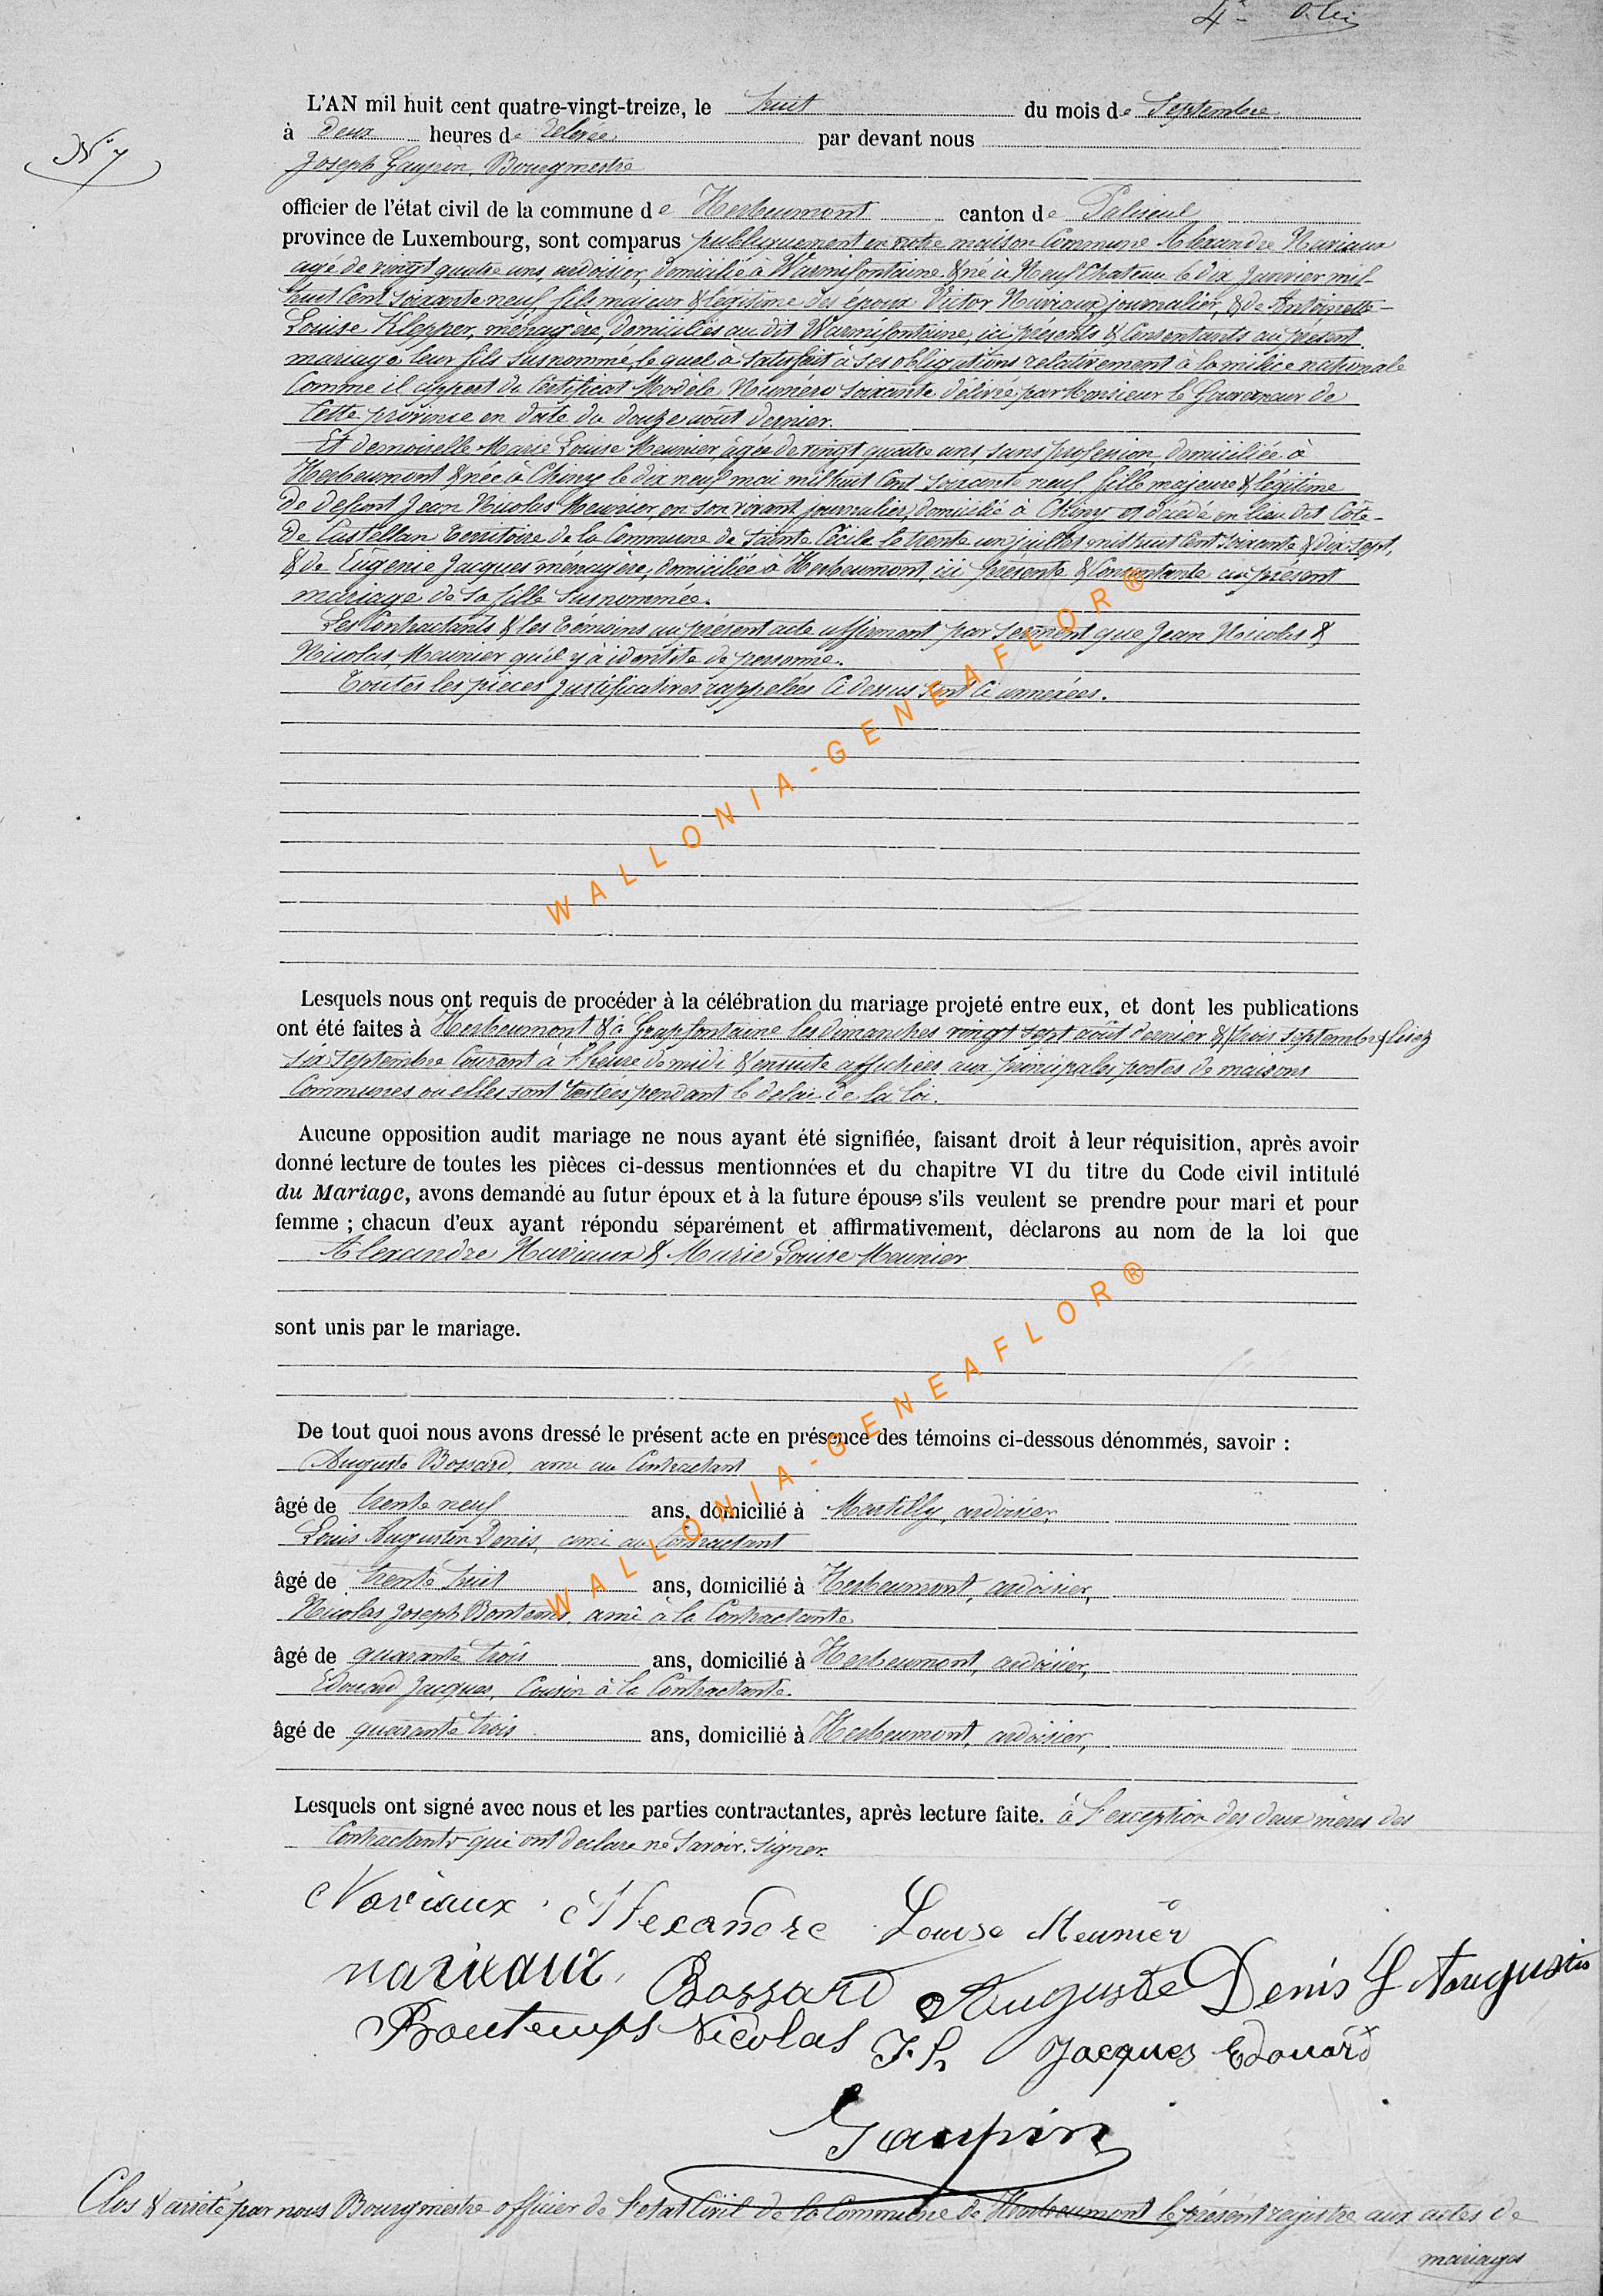 L'AN mil huit cent quatre-vingt-treize, le huit du mois de Septembre
N° 7
à deux heures de relevée par devant nous
Joseph Gaupin, Bourgmestre
officier de l'état civil de la commune de Herbeumont canton de Paliseul
province de Luxembourg, sont comparus publiquement en notre maison Commune Alexandre Naviaux
agé de vingt quatre ans, ardoisier, domicilié à Warmifontaine & né à Neufchateau le dix Janvier mil
huit Cent soixante neuf fils majeur & légitime des époux Victor Naviaux, journalier, & de Antoinette
Louise Klepper, ménagère, domiciliés au dit Warmifontaine, ici présents & Consentants au présent
mariage de leur fils susnommé, lequel à satisfait à ses obligations relativement à la milice nationale
Comme il appert du Certificat Modèle Numéro soixante délivré par Monsieur le Gouverneur de
Cette province en date du douze août dernier.
Et demoiselle Marie Louise Meunier, âgée de vingt quatre ans, sans profession, domiciliée à
Herbeumont & née à Chiny le dix neuf mai mil huit Cent soixante neuf fille majeure & légitime
de défunt Jean Nicolas Meunier, en son vivant journalier, domicilié à Chiny et décédé en lieu dit Côte-
de Castellan territoire de la Commune de Sainte Cécile le trente un juillet mil huit Cent soixante & dix sept,
& de Eugénie Jacques ménagère, domiciliée à Herbeumont, ici présente & Consentante au présent
mariage de sa fille susnommée.
Les Contractants & les témoins au présent acte affirment par serment que Jean Nicolas &
Nicolas Meunier qu'il y à identité de personne.
Toutes les pièces justificatives rappelées Ci dessus sont Ci annexées.
WALLONIA-GENEAFLOR®
Lesquels nous ont requis de procéder à la célébration du mariage projeté entre eux, et dont les publications
ont été faites à Herbeumont & à Grapfontaine les dimanches vingt sept août dernier & trois septembre & lisez
six septembre Courant à l'heure de midi & ensuite affichées aux principales portes de maisons
Communes ou elles sont restées pendant le delai de la loi.
Aucune opposition audit mariage ne nous ayant été signifiée, faisant droit à leur réquisition, après avoir
donné lecture de toutes les pièces ci-dessus mentionnées et du chapitre VI du titre du Code civil intitulé
du Mariage, avons demandé au futur époux et à la future épouse s'ils veulent se prendre pour mari et pour
femme ; chacun d'eux ayant répondu séparément et affirmativement, déclarons au nom de la loi que
Alexandre Naviaux & Marie Louise Meunier
sont unis par le mariage.
WALLONIA-GENEAFLOR®
De tout quoi nous avons dressé le présent acte en présence des témoins ci-dessous dénommés, savoir :
Auguste Bossard, ami au Contractant
âgé de trente neuf ans, domicilié à Martilly, ardoisier,
Louis Augustin Denis, ami au Contractant
âgé de trente huit ans, domicilié à Herbeumont, ardoisier,
Nicolas Joseph Bontems, ami à la Contractante
âgé de quarante trois ans, domicilié à Herbeumont, ardoisier,
Edouard Jacques, Cousin à la Contractante.
âgé de quarante trois ans, domicilié à Herbeumont, ardoisier,
Lesquels ont signé avec nous et les parties contractantes, après lecture faite. à l'exception des deux mères des
Contractants qui ont déclaré ne savoir signer.
Naviaux Alexandre Louise Meunier
naviaux Bossard Auguste Denis L Augustin
Bontemps Nicolas J.h Jacques Edouard
Gaupin
Clos & arrêté par nous Bourgmestre officier de l'etat Civil de la Commune de Herbeumont le présent registre aux actes de
mariages